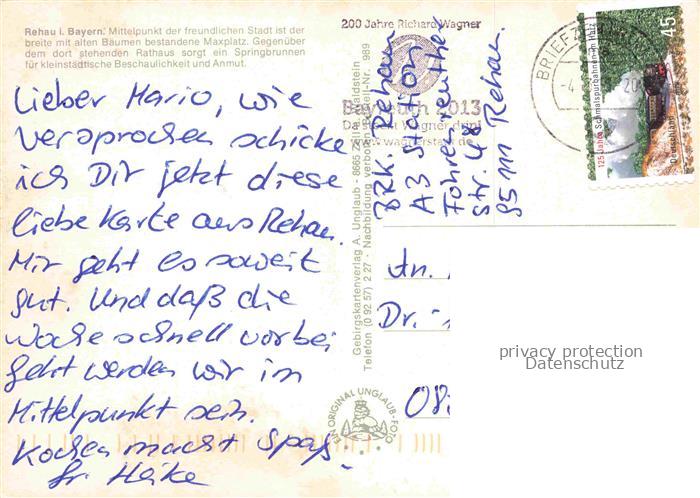 Rehau i. Bayern. Mittelpunkt der freundlichen Stadt ist der
breite mit alten Bäumen bestandene Maxplatz. Gegenüber
dem dort stehenden Rathaus sorgt ein Springbrunnen
für kleinstädtische Beschaulichkeit und Anmut.
Lieber Mario, wie
versprochen schicke
ich Dir jetzt diese
liebe Karte aus Rehau.
Mir geht es soweit
gut. Und daß die
Woche schnell vorbei
geht werden wir im
Mittelpunkt sein.
Kochen macht Spaß.
Gr. Heike
Gebirgskartenverlag A. Unglaub - 8665 Zell/Waldstein
Telefon (0 92 57) 2 27 - Nachbildung verboten - Bestell-Nr. 989
EIN ORIGINAL UNGLAUB-FOTO
200 Jahre Richard Wagner
Bayreuth 2013
Da steckt Wagner drin!
www.wagnerstadt.de
BRK. Rehau
A3 Station
Fohrenreuther
Str. 48
95111 Rehau.
BRIEFZ
125 Jahre Schmalspurbahnen im Harz
Deutschland
45
An.
Dr.
08
privacy protection
Datenschutz